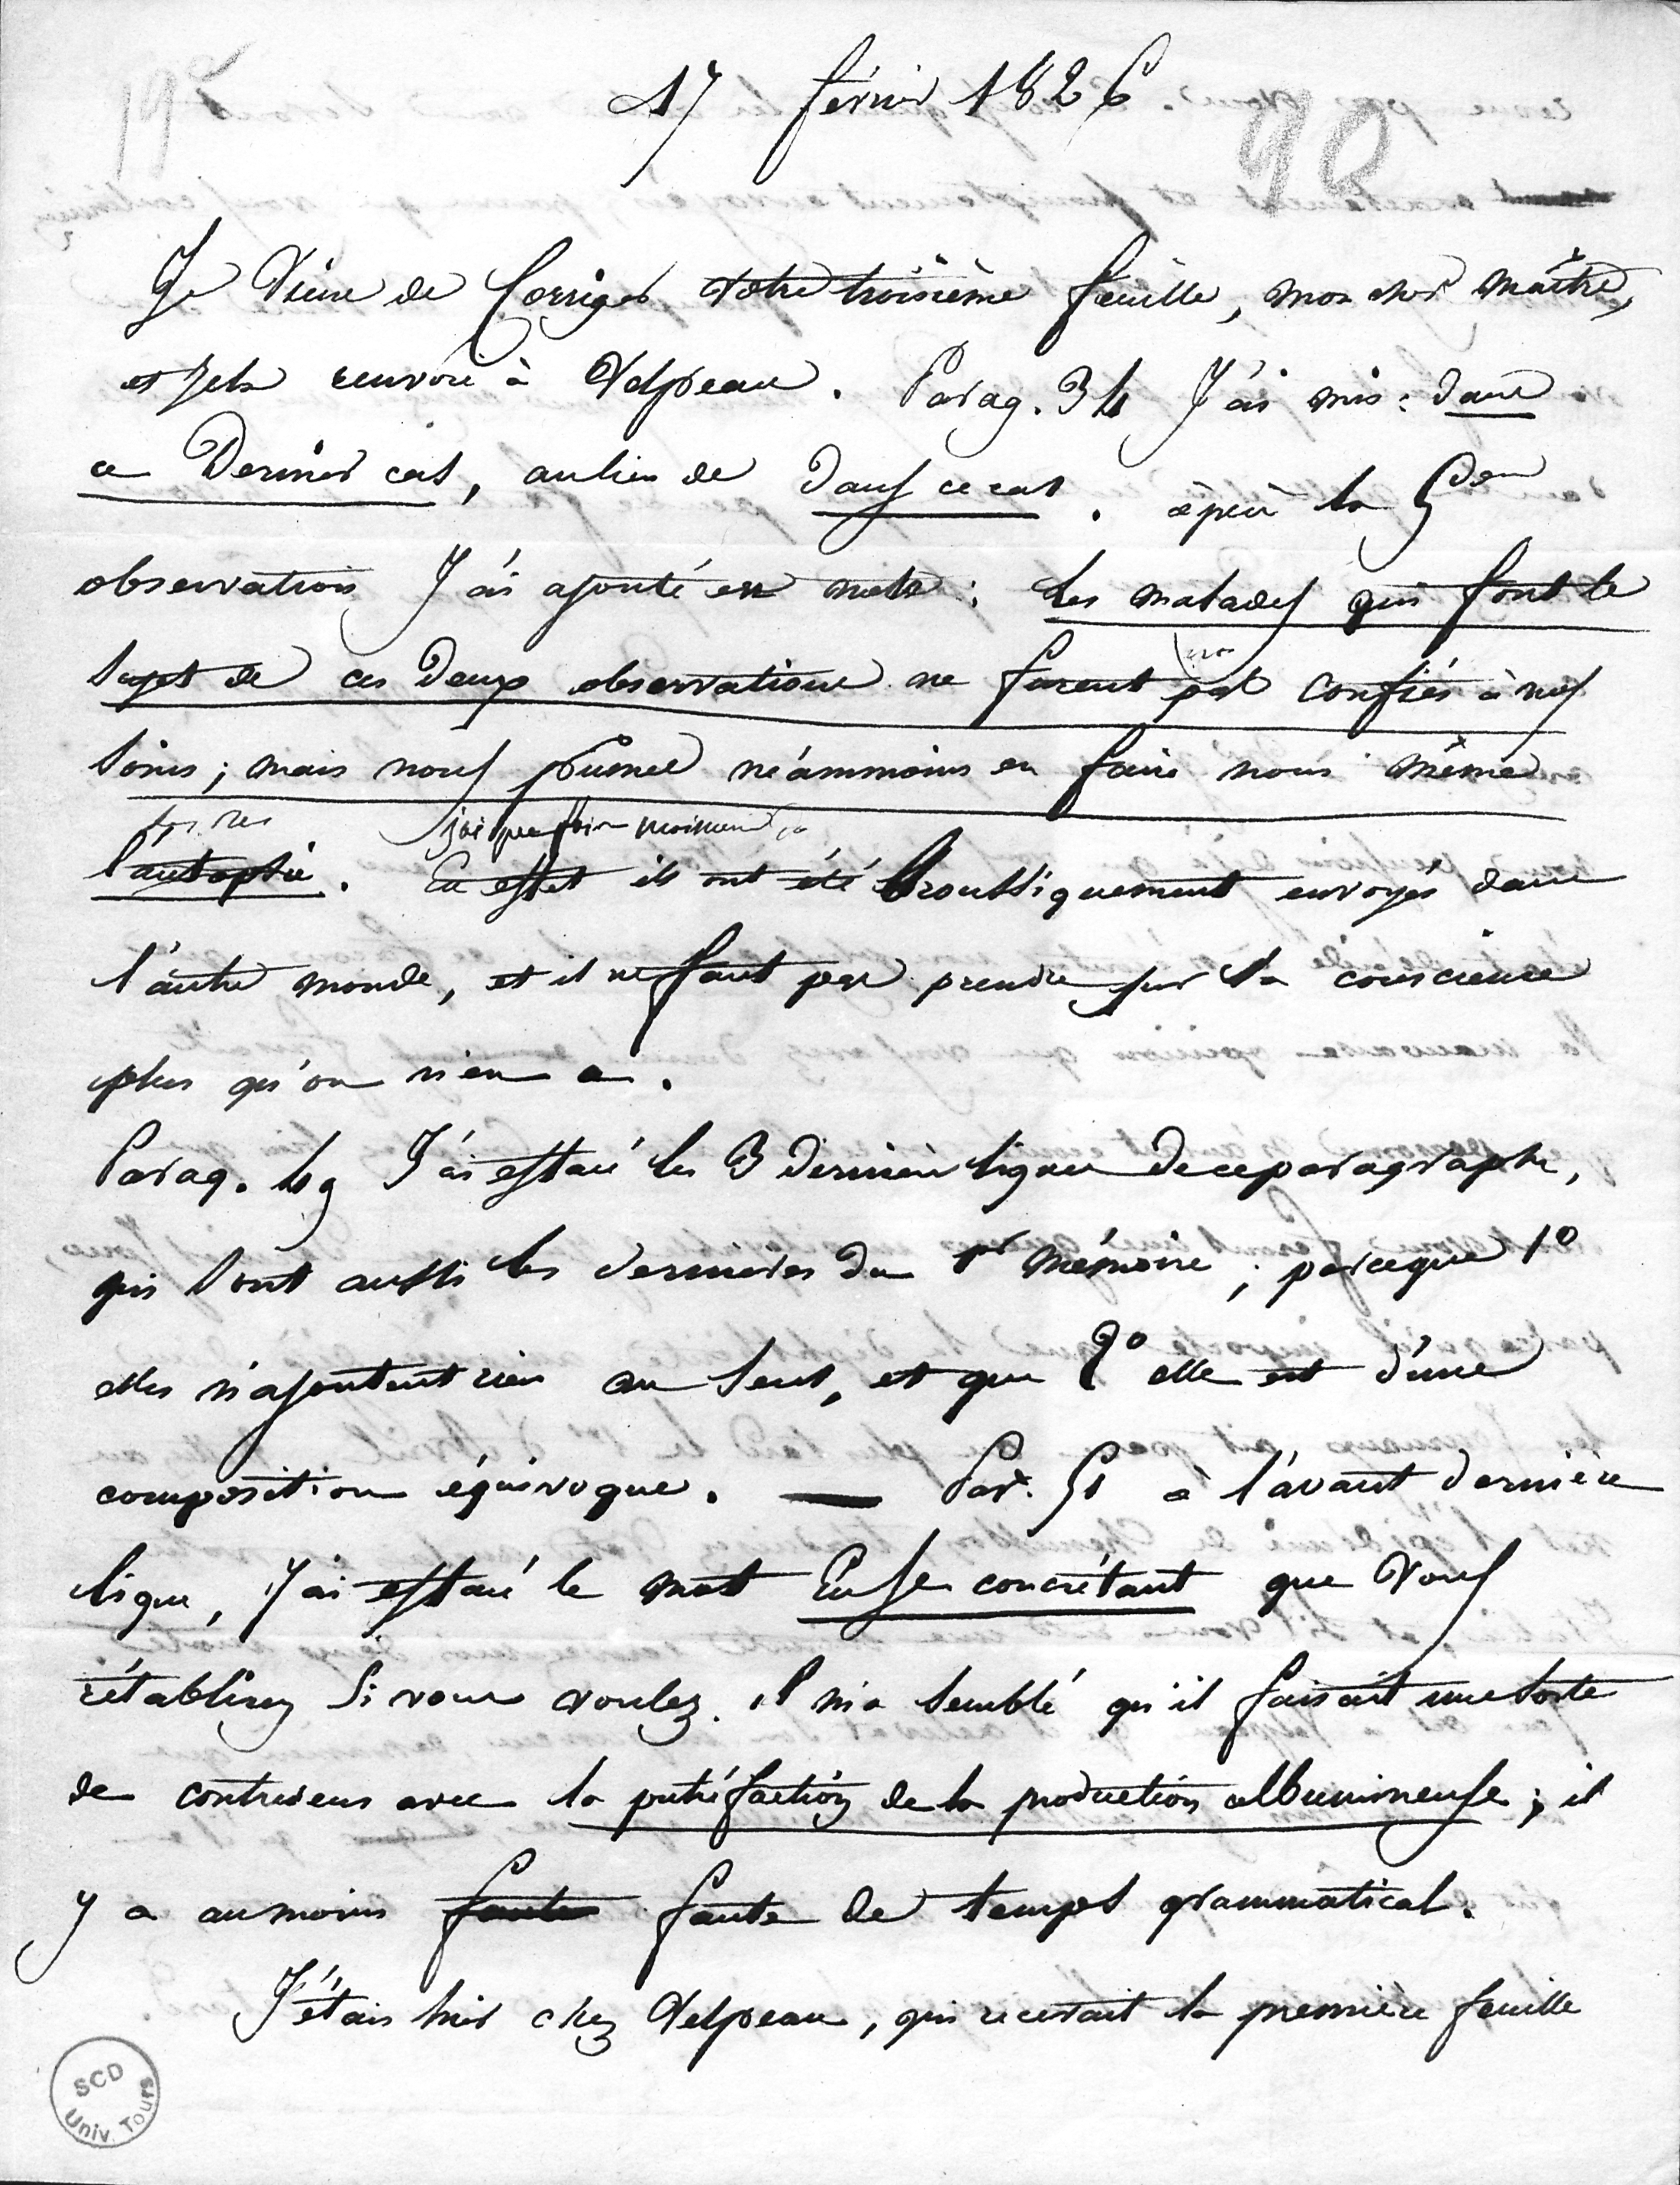 17 février 1826
90
Je viens de corriger votre troisième feuille, mon cher maître,
et je la renvoie à Velpeau. Parag. 34 J'ai mis : dans
ce dernier cas, au lieu de dans ce cas. après la
observation J'ai ajouté en note : Les malades qui font le
sujet de ces deux observations ne furent pas confiés à nos
soins ; mais nous pûmes néammoins en faire nous même
l'autopsie. En effet ils ont été Broussiquement envoyés dans
l'autre monde, et il ne faut pas prendre sur sa conscience
plus qu'on n'en a.
Parag. 49 J'ai effacé les 3 dernières lignes de ce paragraphe,
qui sont aussi les dernières du 1er mémoire ; parceque 1º
elles n'ajoutent rien au sens, et que 2º elle est d'une
composition équivoque. — Par. 51 à l'avant dernière
ligne, J'ai effacé le mot En se concrétant que vous
rétablirez si vous voulez. il m'a semblé qu'il faisait une sorte
de contresens avec la putréfaction de la production albumineuse ; il
y a au moins faute faute de temps grammatical.
J'étais hier chez Velpeau, qui recevait la première feuille
SCD
Univ. Tours